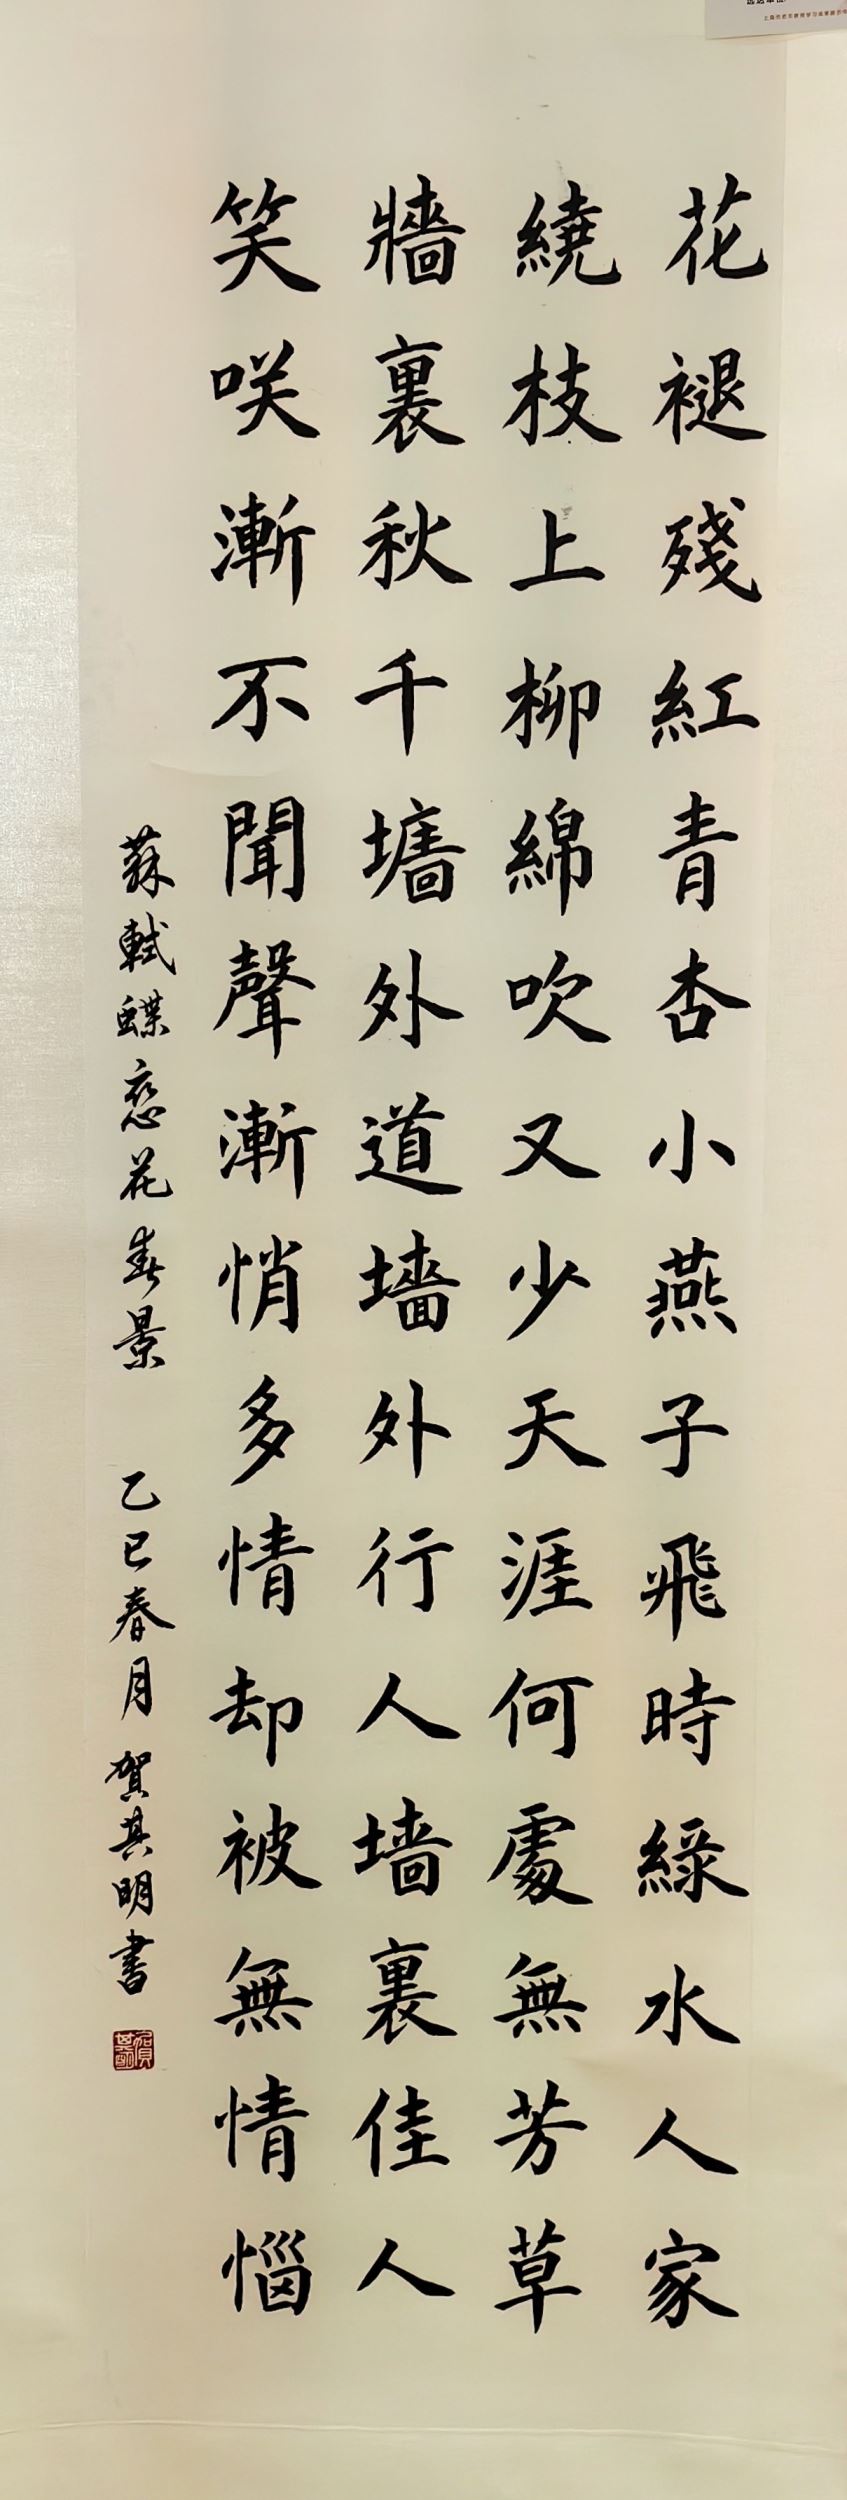 花褪殘紅青杏小燕子飛時綠水人家
繞枝上柳綿吹又少天涯何處無芳草
牆裏秋千墻外道墻外行人墙裏佳人
笑咲漸不聞聲漸悄多情却被無情惱
蘇軾蝶戀花春景 乙巳春月賀其明書